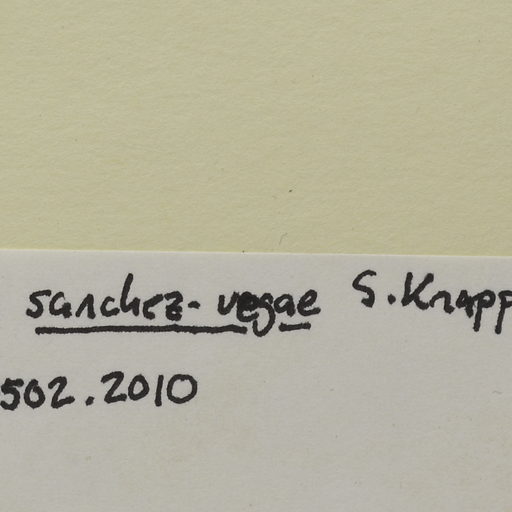 sanchez-vegae S. Knapp
502.2010